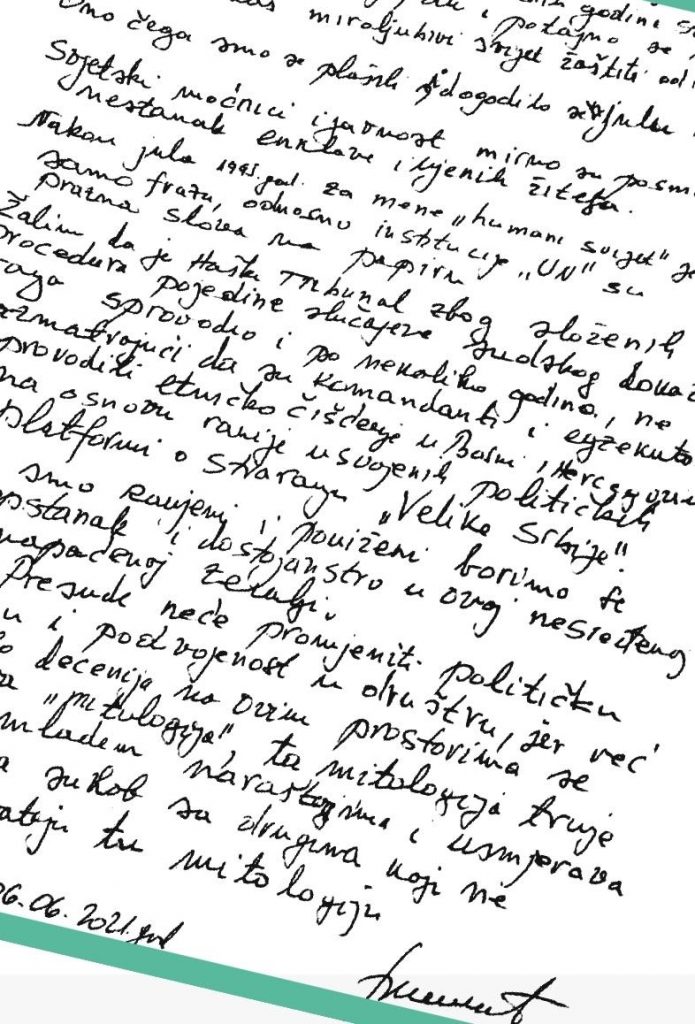 godini
i potajno se
miroljubivi svijet zaštiti od
Ono čega smo se plašili dogodilo se jula
Svjetski moćnici i javnost mirno su posm
nestanak enklave i njenih žitelja.
Nakon jula 1995.god. za mene „humani svijet" je
samo fraza, odnosno institucije „UN" su
prazna slova na papiru
Žalim da je Haški Tribunal zbog složenih
procedura pojedine slučajeve sudskog dokaz
sprovodio i po nekoliko godina, ne
azmatrajući da su komandanti i egzekuto
provodili etničko čišćenje u Bosni i Hercegovini
na osnovu ranije usvojenih političkih
platformi o stvaranju „Velike Srbije".
smo ranjeni i poniženi borimo se
opstanak i dostojanstvo u ovoj nesretenoj
napaćenoj zemlji.
Presude neće promijeniti političku
u i podvojenost u društvu, jer već
decenija na ovim prostorima se
"mitologija", ta mitologija truje
mladem naraštajima i usmjerava
a sukob sa drugima koji ne
ataju tu mitologiju
06.06.2021.god